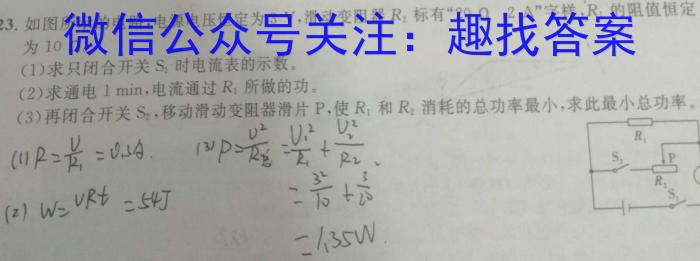 23. 如图所 的电路,电源电压恒定为3 V,滑动变阻器 R₂ 标有“20 Ω 2 A”字样,R₁ 的阻值恒定
微信公众号关注：趣找答案
为 10
(1)求只闭合开关 S₁ 时电流表的示数。
(2)求通电 1 min,电流通过 R₁ 所做的功。
(3)再闭合开关 S₂,移动滑动变阻器滑片 P,使 R₁ 和 R₂ 消耗的总功率最小,求此最小总功率。
(1) R=U/R₁=0.3A. (3) P=U²/R总=U₁²/R₁+U₂²/R₂.
=3²/10+3/20
(2) W=URt=54J
=1.35W.
R₁
S₂ P
R₂
S₁